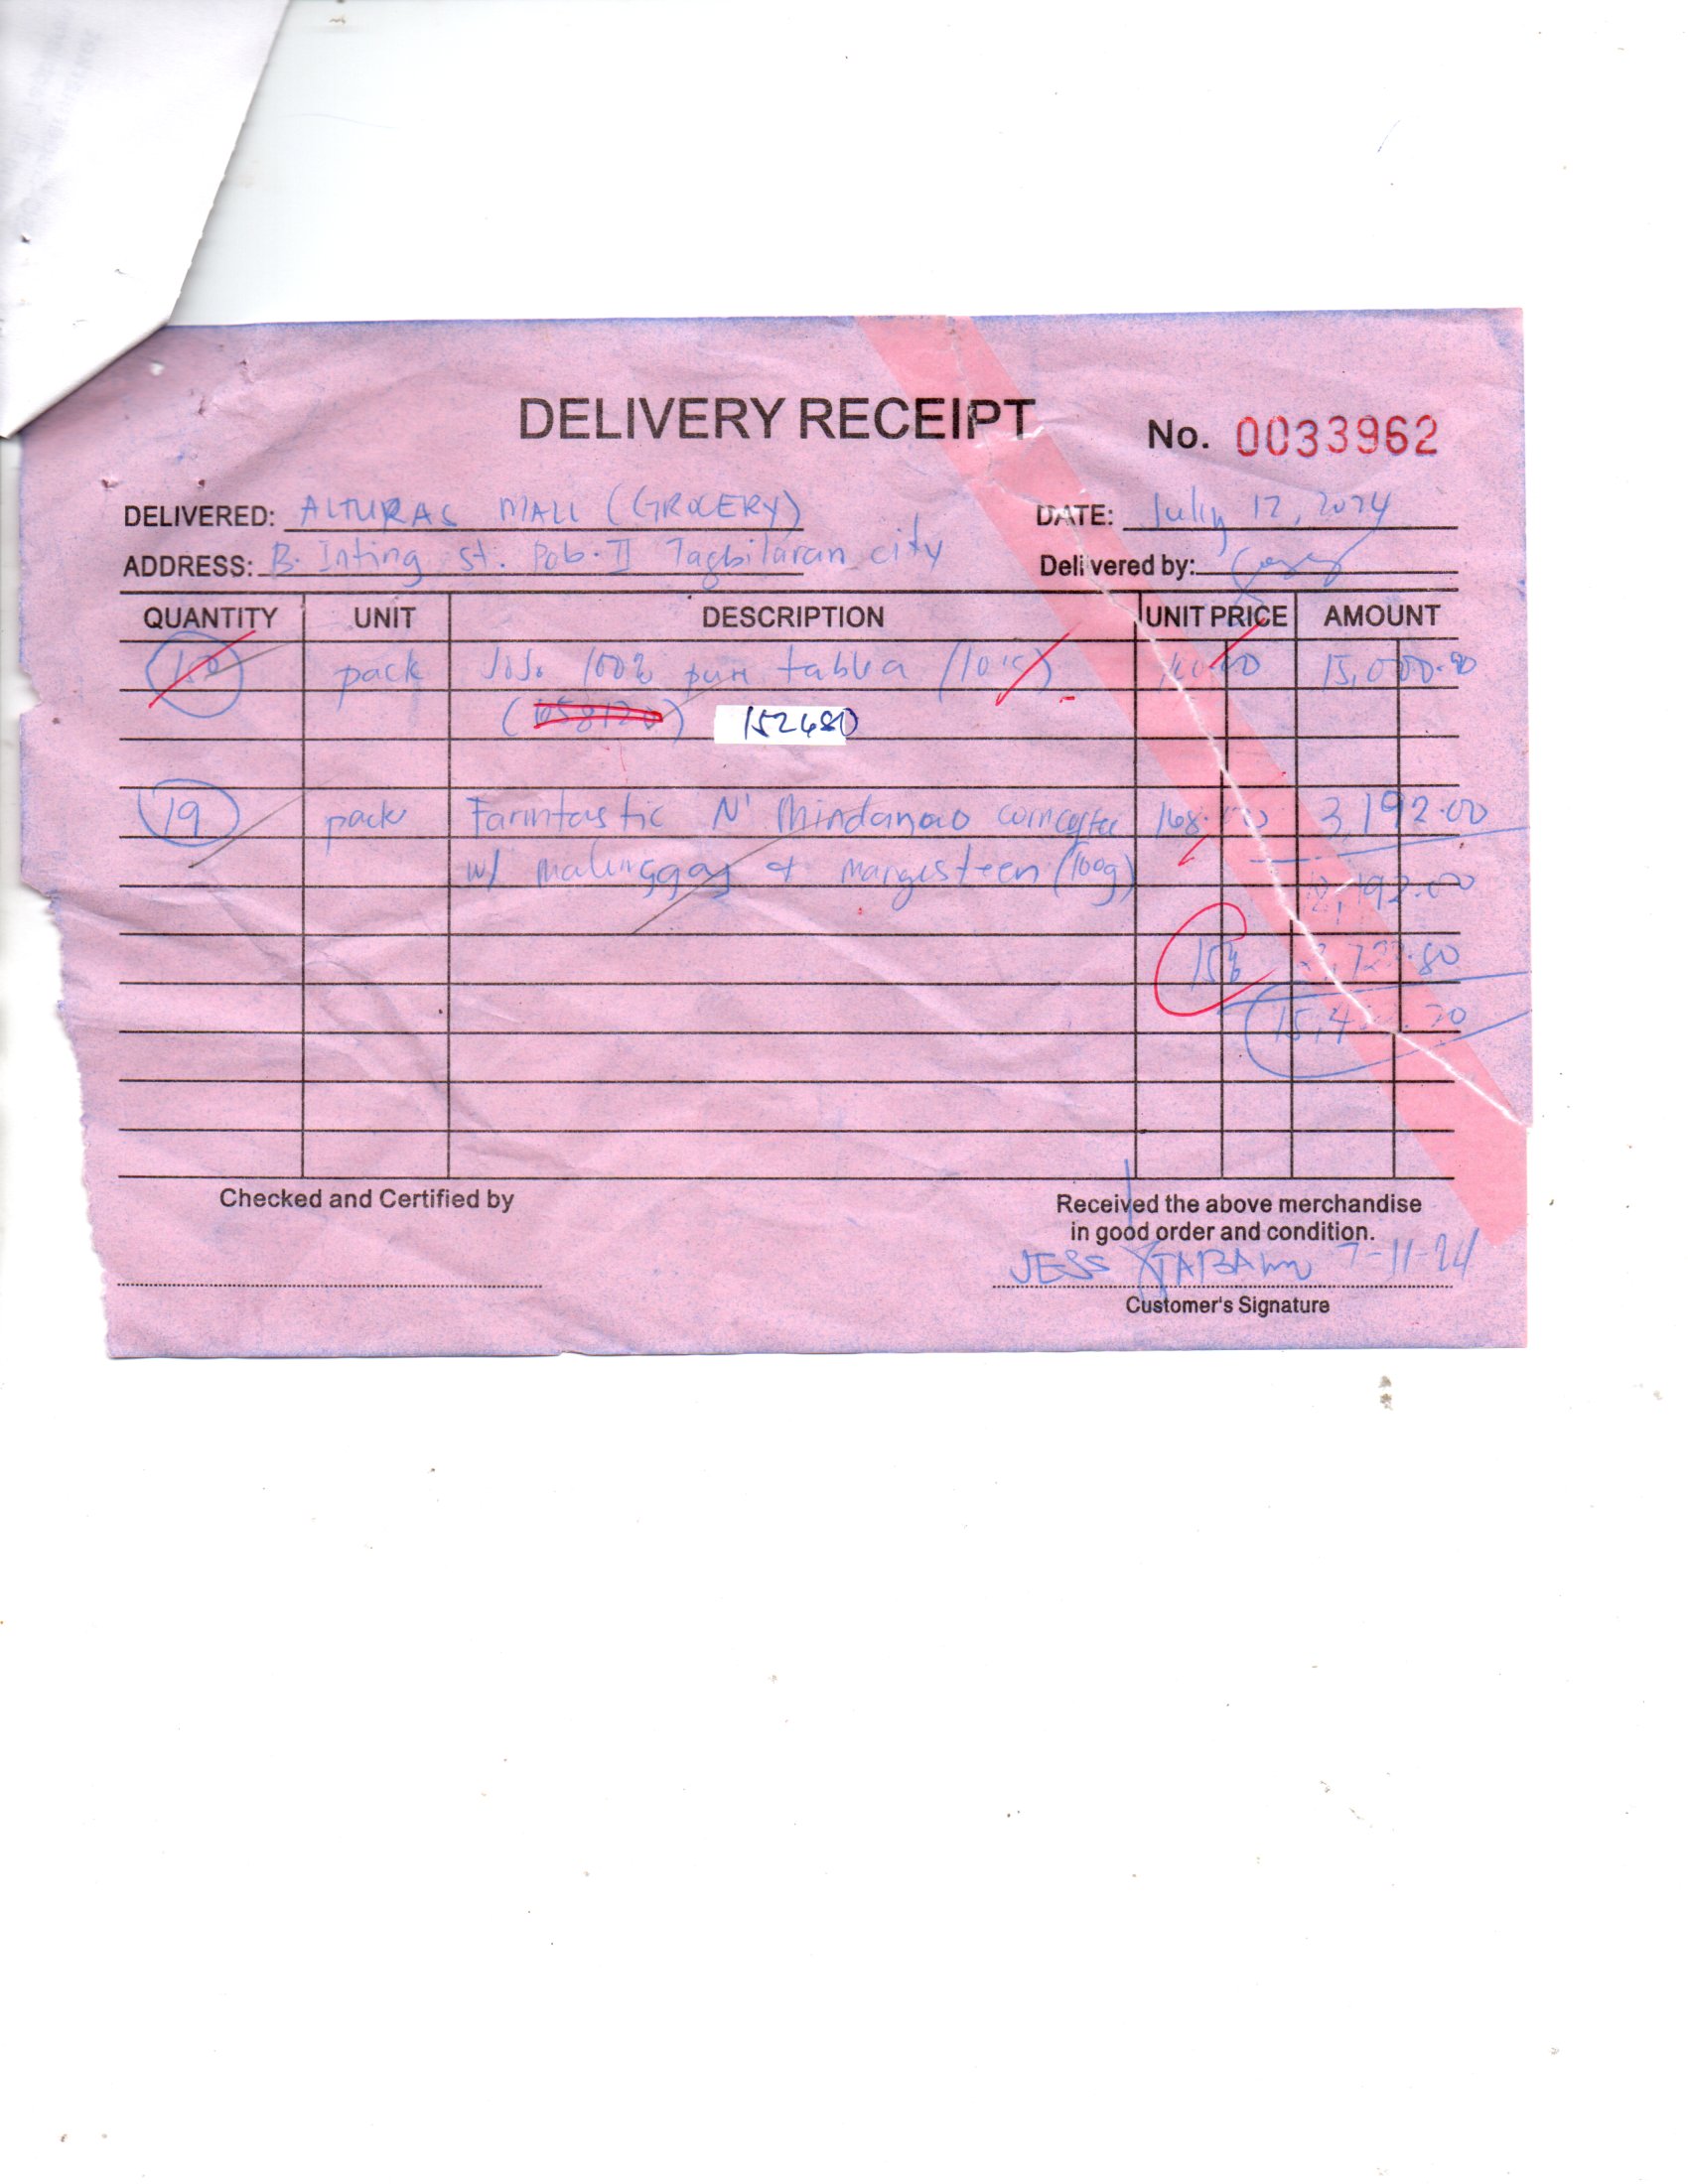 DELIVERY RECEIPT
No. 0033962
DELIVERED: ALTURAS MALL (GROCERY)
DATE: July 12, 2024
ADDRESS: B. Inting st. Pob. II Tagbilaran city
Delivered by:
QUANTITY UNIT DESCRIPTION UNIT PRICE AMOUNT
pack JoJo 100% pure tablea (10's) 15,000.00
152480
19 pack Farmtastic N' Mindanao corncoffee 168.00 3,192.00
w/ malunggay & mangosteen (100g)
18,192.00
15%
Checked and Certified by
Received the above merchandise
in good order and condition.
JESS 7-11-24
Customer's Signature